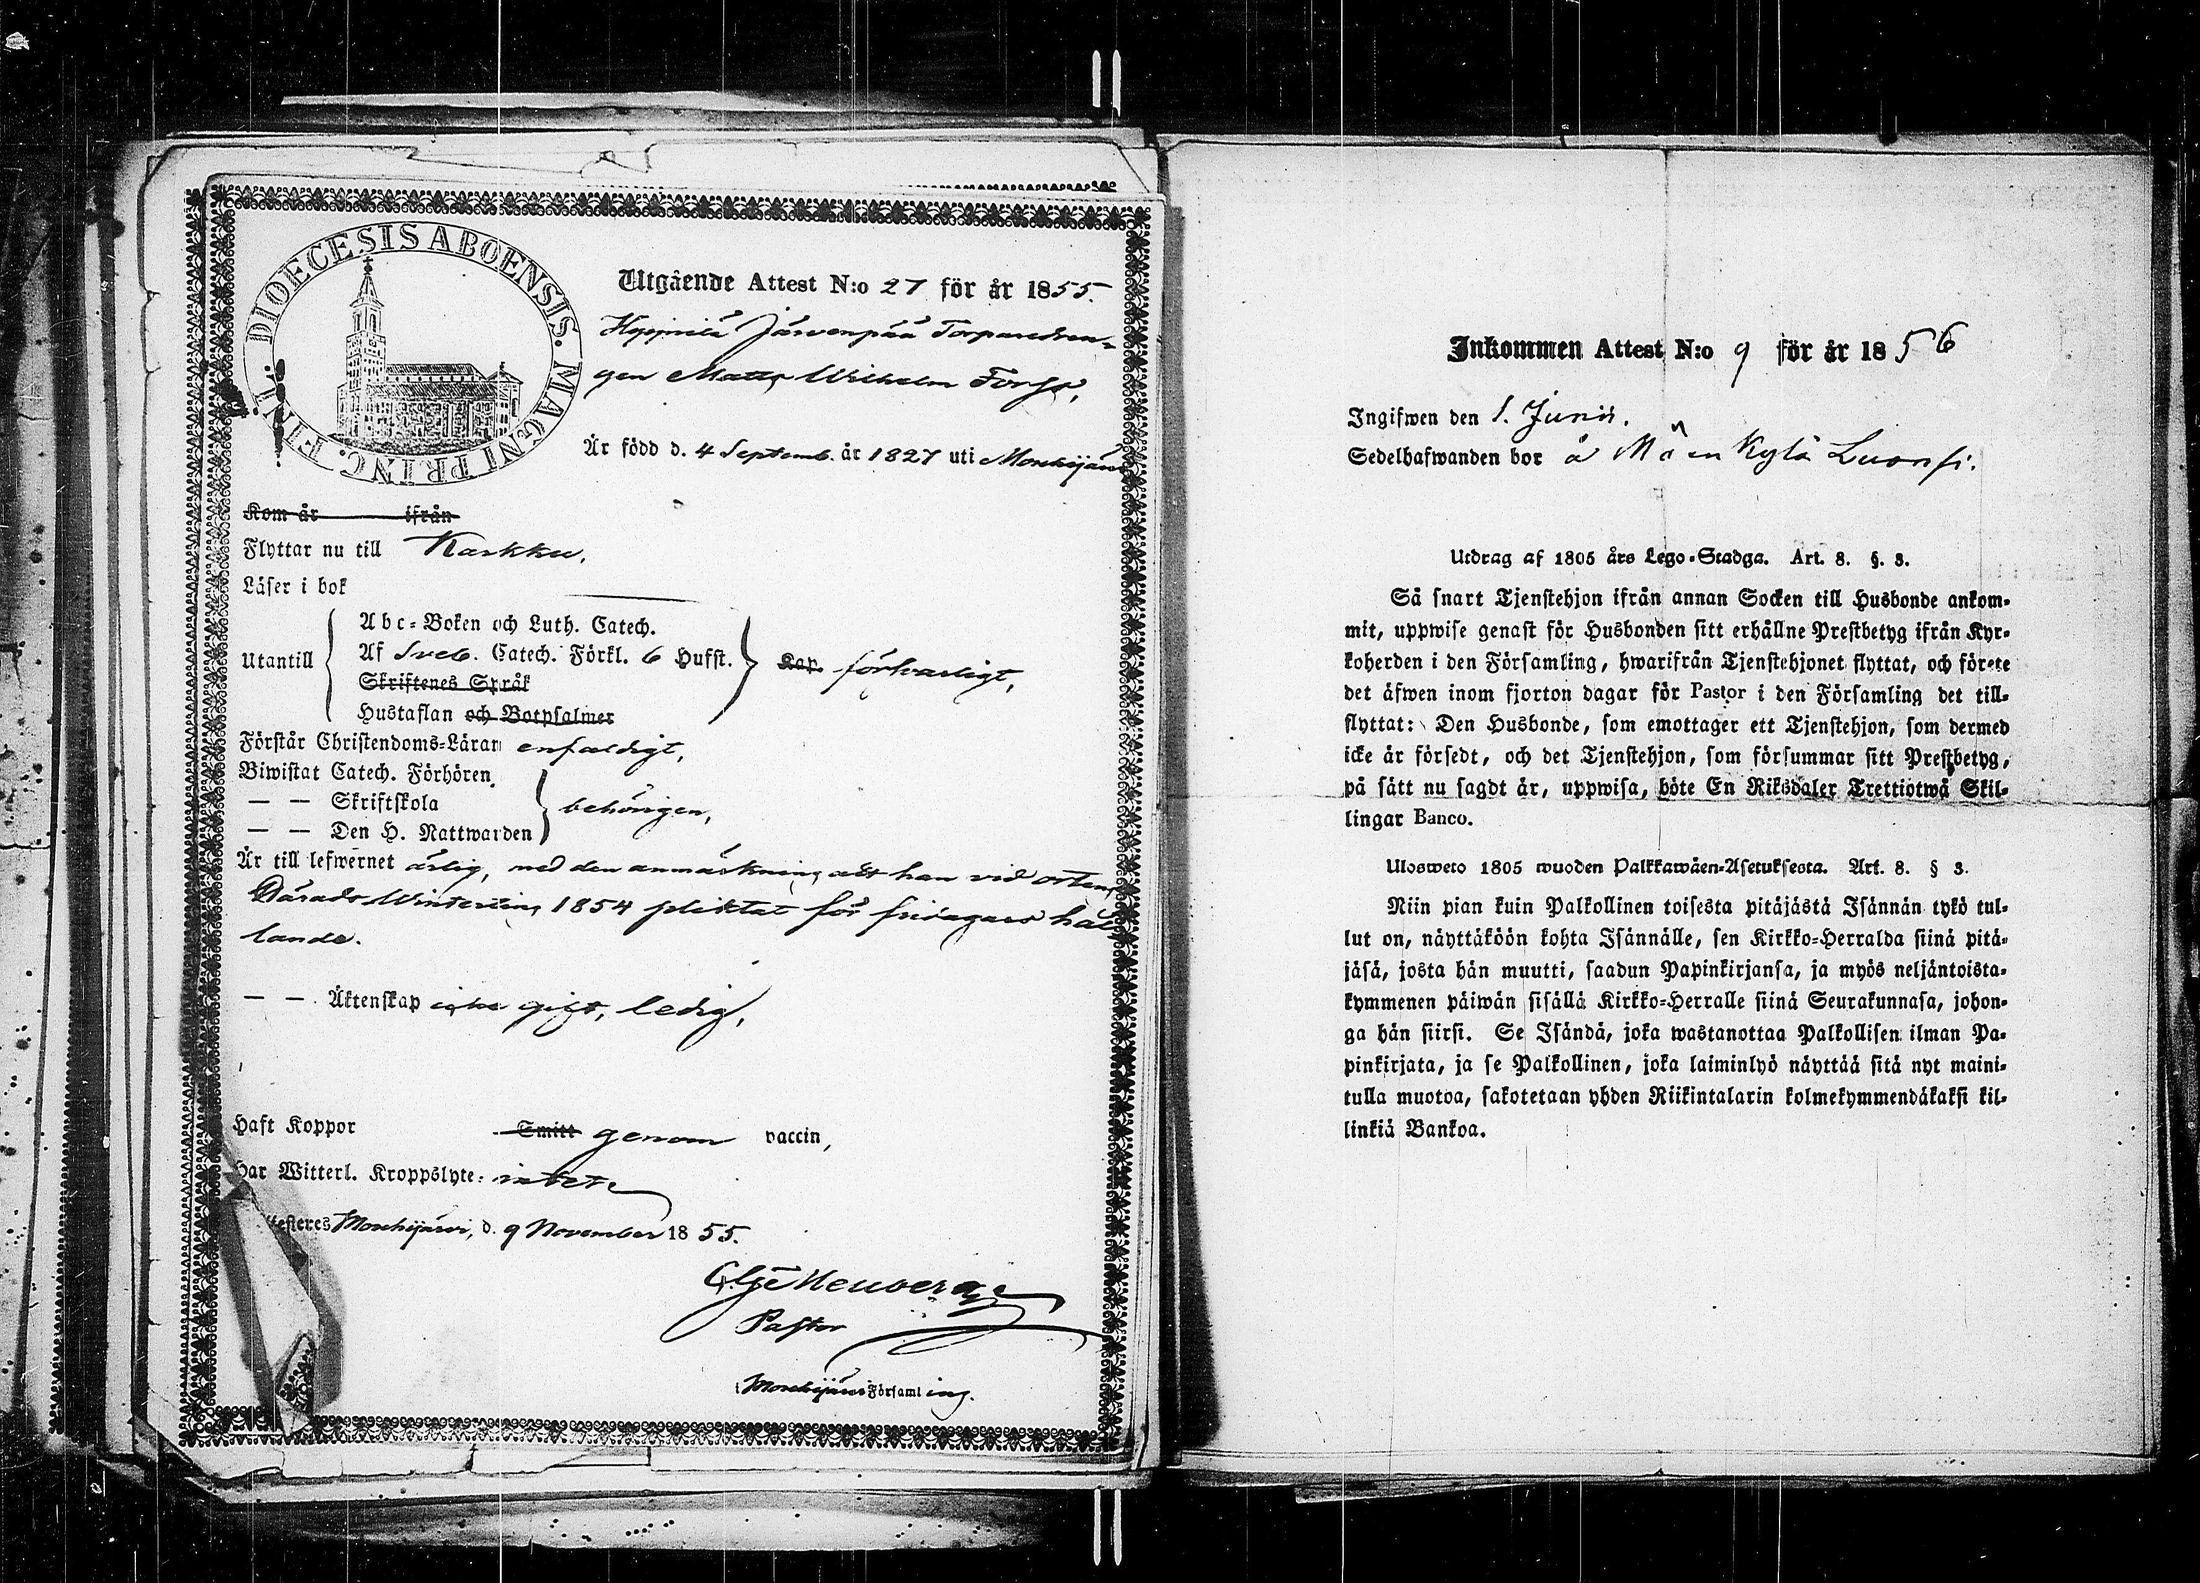 DIOECESIS ABOENSIS. MAGNI PRINC. FINL.
Utgående Attest N:o 27 för år 1855.
Hypnilä Järvenpää Torparedren-
gen Matts Wilhelm Forss,
Är född d. 4 Septemb. år 1827 uti Mouhijärvi
Kom år ifrån
Flyttar nu till Karkku,
Läser i bok
Utantill
Abc-Boken och Luth. Catech.
Af Sveb. Catech. Förkl. 6 Hufst.
Skriftenes Språk
Hustaflan och Botpsalmer
Kap. försvarligt,
Förstår Christendoms-Läran enfaldigt,
Biwistat Catech. Förhören
— — Skriftskola
— — Den H. Nattwarden
behörigen,
Är till lefwernet ärlig, med den anmärkning att han vid ortens
Härads Winterting 1854 pliktat för fridagars hål
lande.
— — Äktenskap icke gift, ledig,
Haft Koppor Smitt genom vaccin,
Har Witterl. Kroppslyte: intet
Attesteres Mouhijärvi, d. 9 November 1855.
Pastor
Mouhijärvi Församling.
Inkommen Attest N:o 9 för år 1856
Ingifwen den 1. Junii.
Sedelhafwanden bor å Mäenkylä Luonsi.
Utdrag af 1805 års Lego-Stadga. Art. 8. §. 3.
Så snart Tjenstehjon ifrån annan Socken till Husbonde ankom-
mit, uppwise genast för Husbonden sitt erhållne Prestbetyg ifrån Kyr-
koherden i den Församling, hwarifrån Tjenstehjonet flyttat, och förete
det äfwen inom fjorton dagar för Pastor i den Församling det till-
flyttat: Den Husbonde, som emottager ett Tjenstehjon, som dermed
icke är försedt, och det Tjenstehjon, som försummar sitt Prestbetyg,
på sätt nu sagdt är, uppwisa, böte En Riksdaler Trettiotwå Skil-
lingar Banco.
Ulosweto 1805 wuoden Palkkawäen-Asetuksesta. Art. 8. § 3.
Niin pian kuin Palkollinen toisesta pitäjästä Isännän tykö tul-
lut on, näyttäköön kohta Isännälle, sen Kirkko-Herralda siinä pitä-
jäsä, josta hän muutti, saadun Papinkirjansa, ja myös neljäntoista-
kymmenen päiwän sisällä Kirkko-Herralle siinä Seurakunnasa, johon-
ga hän siirsi. Se Isändä, joka wastanottaa Palkollisen ilman Pa-
pinkirjata, ja se Palkollinen, joka laiminlyö näyttää sitä nyt maini-
tulla muotoa, sakotetaan yhden Riikintalarin kolmekymmendäkaksi kil-
linkiä Bankoa.